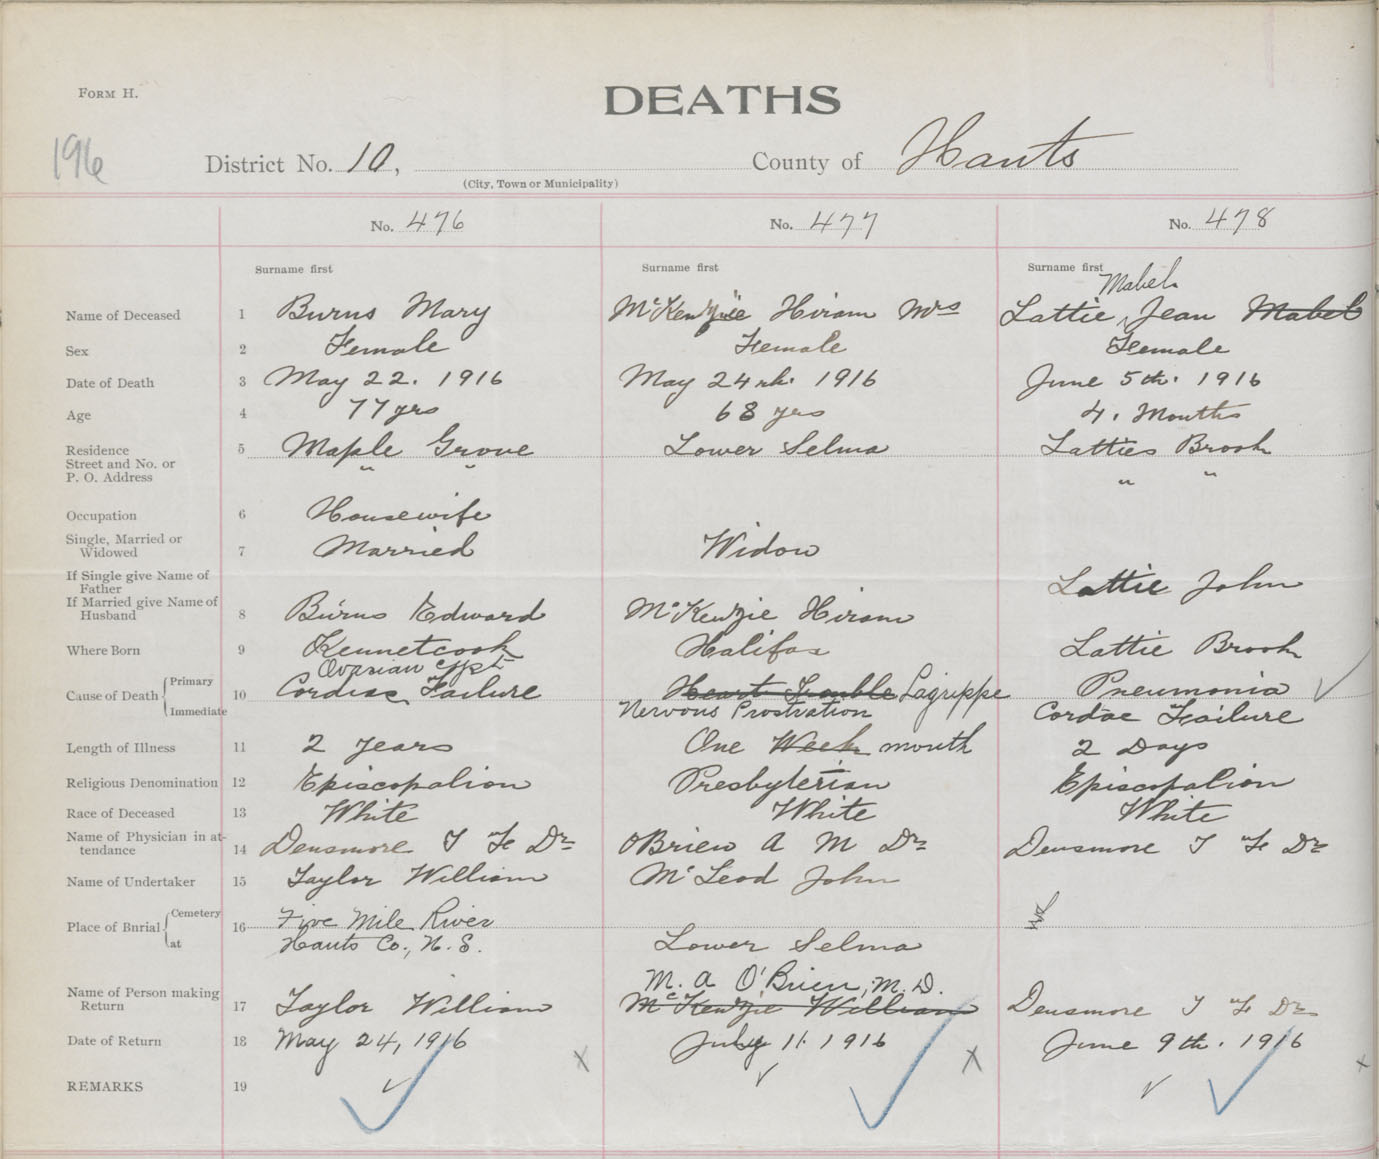 FORM H.
DEATHS
196
District No. 10, County of Hants
(City, Town or Municipality)
No. 476 No. 477 No. 478
Surname first Surname first Surname first
Mabel
Name of Deceased 1 Burns Mary McKenzie Hiram Mrs Lattie Jean Mabel
Sex 2 Female Female Female
Date of Death 3 May 22. 1916 May 24th. 1916 June 5th. 1916
Age 4 77 yrs 68 yrs 4. Months
Residence 5 Maple Grove Lower Selma Latties Brook
Street and No. or " " " "
P. O. Address
Occupation 6 Housewife
Single, Married or
Widowed 7 Married Widow
If Single give Name of
Father Lattie John
If Married give Name of
Husband 8 Burns Edward McKenzie Hiram
Where Born 9 Kennetcook Halifax Lattie Brook
Ovarian cyst
Primary
Cause of Death 10 Cordiac Failure Heart Trouble Lagrippe Pneumonia
Immediate Nervous Prostration Cordae Failure
Length of Illness 11 2 years One Week month 2 Days
Religious Denomination 12 Episcopalion Presbyterian Episcopalion
Race of Deceased 13 White White White
Name of Physician in at-
tendance 14 Densmore T F Dr O'Brien A M Dr Densmore T F Dr
Name of Undertaker 15 Taylor William McLeod John
Cemetery Five Mile River
Place of Burial 16
at Hants Co., N.S. Lower Selma
M. A O'Brien, M.D.
Name of Person making
Return 17 Taylor William McKenzie William Densmore T F Dr
Date of Return 18 May 24, 1916 July 11. 1916 June 9th. 1916
REMARKS 19